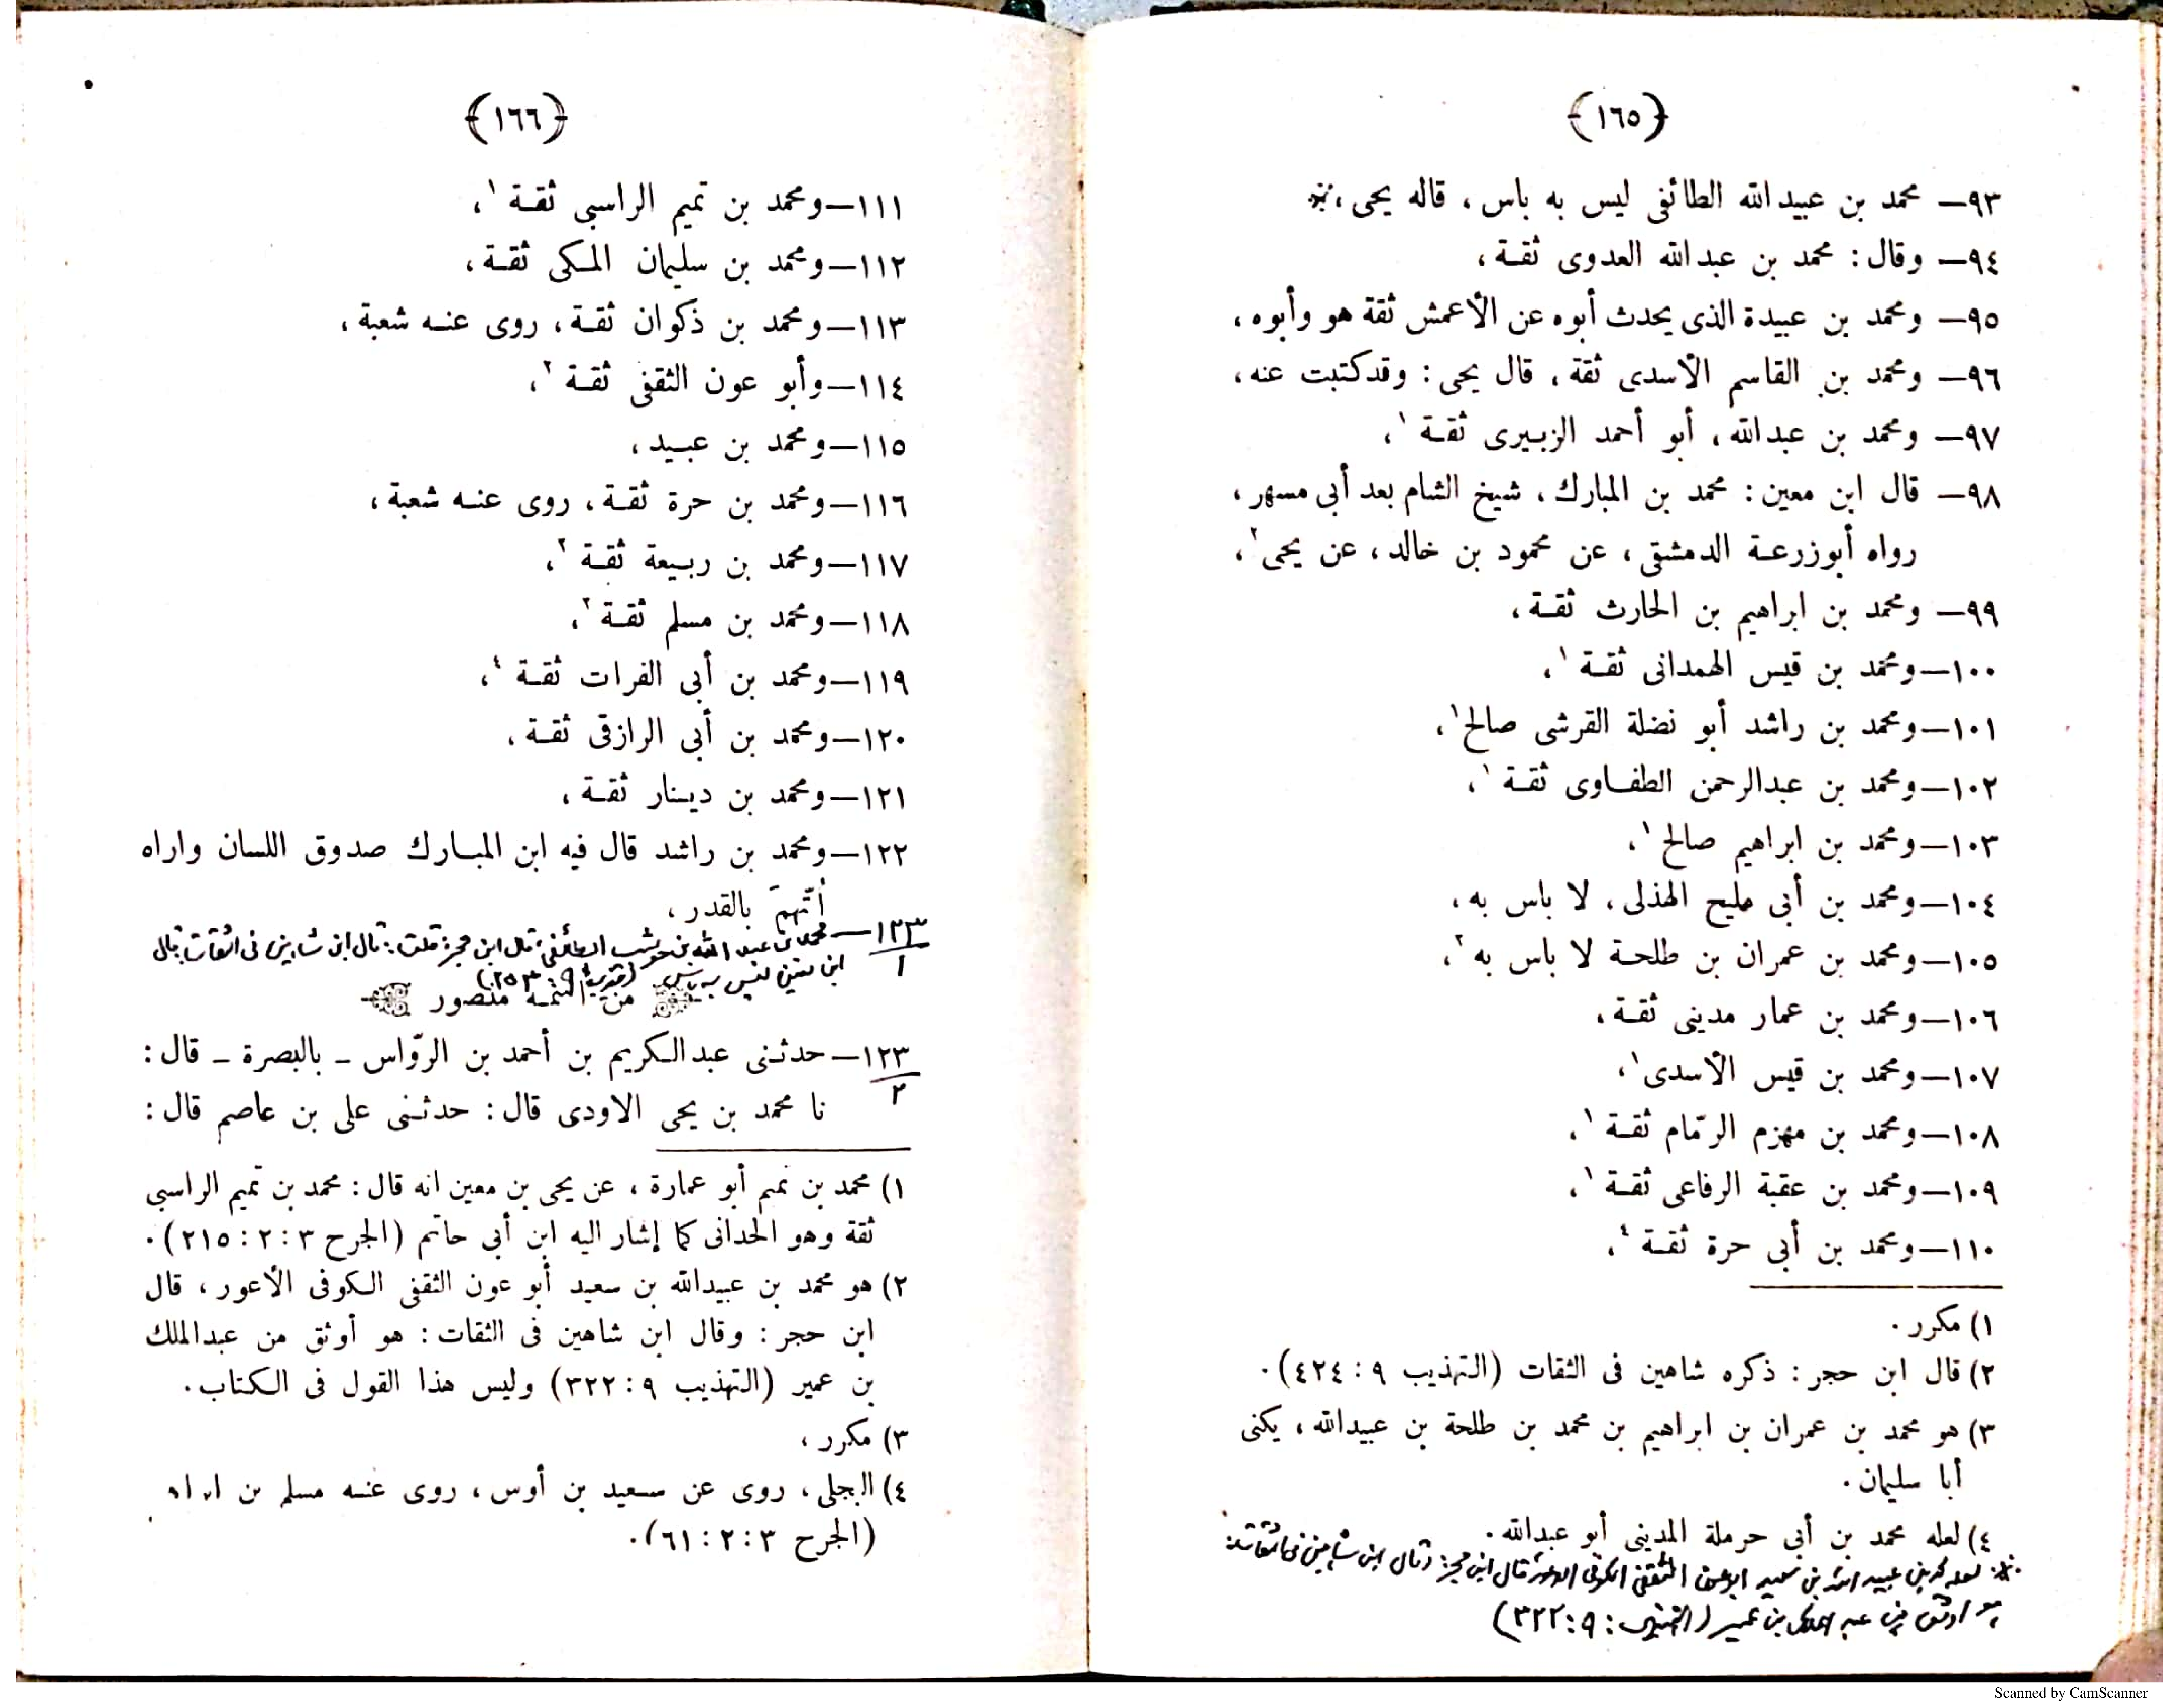 ﴿١٦٥﴾
٩٣— محمد بن عبيدالله الطائفى ليس به باس ، قاله يحيى ،
٩٤— وقال : محمد بن عبدالله العدوى ثقة ،
٩٥— ومحمد بن عبيدة الذى يحدث أبوه عن الأعمش ثقة هو وأبوه ،
٩٦— ومحمد بن القاسم الأسدى ثقة ، قال يحيى : وقدكتبت عنه ،
٩٧— ومحمد بن عبدالله ، أبو أحمد الزبيرى ثقة ١،
٩٨— قال ابن معين : محمد بن المبارك ، شيخ الشام بعد أبى مسهر ،
رواه أبوزرعة الدمشقى ، عن محمود بن خالد ، عن يحيى ٢،
٩٩— ومحمد بن ابراهيم بن الحارث ثقة ،
١٠٠—ومحمد بن قيس الهمدانى ثقة ١،
١٠١—ومحمد بن راشد أبو نضلة القرشى صالح ١،
١٠٢—ومحمد بن عبدالرحمن الطفاوى ثقة ١،
١٠٣—ومحمد بن ابراهيم صالح ١،
١٠٤—ومحمد بن أبى مليح الهذلى ، لا باس به ،
١٠٥—ومحمد بن عمران بن طلحة لا باس به ٣،
١٠٦—ومحمد بن عمار مدينى ثقة ،
١٠٧—ومحمد بن قيس الأسدى ١،
١٠٨—ومحمد بن مهزم الرمّام ثقة ١،
١٠٩—ومحمد بن عقبة الرفاعى ثقة ١،
١١٠—ومحمد بن أبى حرة ثقة ٤،
١) مكرر .
٢) قال ابن حجر : ذكره شاهين فى الثقات (التهذيب ٩ : ٤٢٤) .
٣) هو محمد بن عمران بن ابراهيم بن محمد بن طلحة بن عبيدالله ، يكنى
أبا سليمان .
٤) لعله محمد بن أبى حرملة المدينى أبو عبدالله .
لعله محمد بن عبيد الله بن سعيد ابوعون الثقفى الكوفى الاعور قال ابن حجر : وقال ابن شاهين فى الثقات :
هو اوثق من عبد الملك بن عمير (التهذيب : ٩ : ٣٢٢)
﴿١٦٦﴾
١١١—ومحمد بن تميم الراسبى ثقة ١،
١١٢—ومحمد بن سليمان المكى ثقة ،
١١٣—ومحمد بن ذكوان ثقة ، روى عنه شعبة ،
١١٤—وأبو عون الثقفى ثقة ٢،
١١٥—ومحمد بن عبيد ،
١١٦—ومحمد بن حرة ثقة ، روى عنه شعبة ،
١١٧—ومحمد بن ربيعة ثقة ٣،
١١٨—ومحمد بن مسلم ثقة ٣،
١١٩—ومحمد بن أبى الفرات ثقة ٤،
١٢٠—ومحمد بن أبى الرازقى ثقة ،
١٢١—ومحمد بن دينار ثقة ،
١٢٢—ومحمد بن راشد قال فيه ابن المبارك صدوق اللسان واراه
أتّهمَ بالقدر ،
١٢٣/١— محمد بن عبد الله بن حوشب الطائفى، قال ابن حجر: قلت: قال ابن شاهين فى الثقات قال
ابن معين ليس به باس (تهذيب ٩ : ٢٥٣)
من اسمه منصور
١٢٣/٢— حدثنى عبدالكريم بن أحمد بن الروّاس – بالبصرة – قال :
نا محمد بن يحيى الاودى قال : حدثنى على بن عاصم قال :
١) محمد بن تميم أبو عمارة ، عن يحيى بن معين انه قال : محمد بن تميم الراسبى
ثقة وهو الحدانى كما إشار اليه ابن أبى حاتم (الجرح ٣ : ٢ : ٢١٥) .
٢) هو محمد بن عبيدالله بن سعيد أبو عون الثقفى الكوفى الأعور ، قال
ابن حجر : وقال ابن شاهين فى الثقات : هو أوثق من عبدالملك
بن عمير (التهذيب ٩ : ٣٢٢) وليس هذا القول فى الكتاب .
٣) مكرر ،
٤) البجلى ، روى عن سعيد بن أوس ، روى عنه مسلم بن
(الجرح ٣ : ٢ : ٦١) .
Scanned by CamScanner